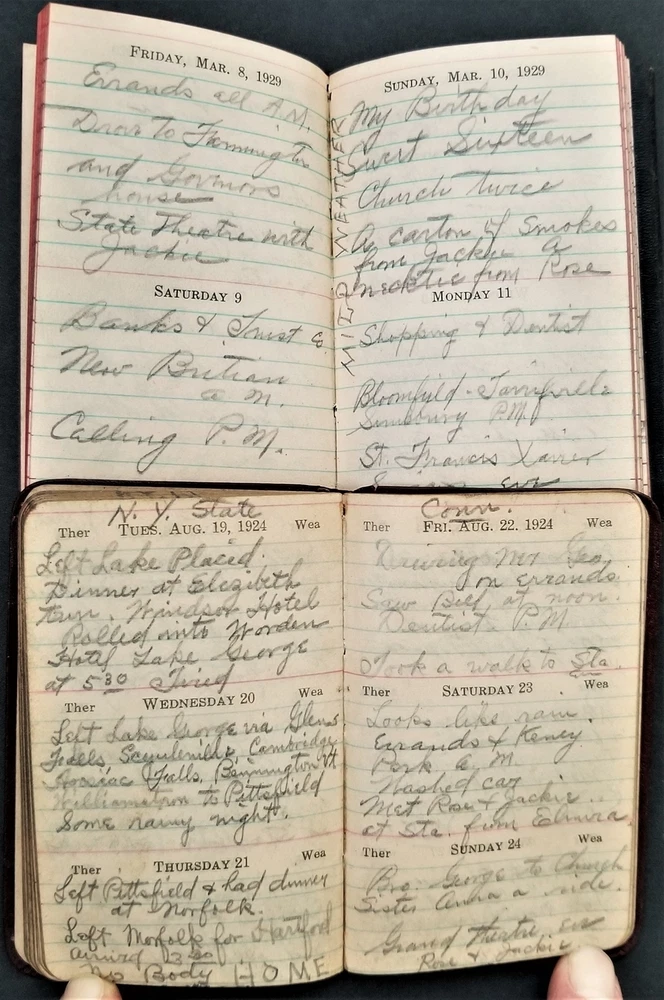 FRIDAY, MAR. 8, 1929
Errands all A.M.
Drove to Farmington
and Govenors
house
State Theatre with
Jackie
SATURDAY 9
Banks & Trust Co
New Britian
a M.
Calling P.M.
SUNDAY, MAR. 10, 1929
My Birthday
Swert Sixteen
Church twice
A carton of Smokes
from Jackie a
necktie from Rose
MILD WEATHER
MONDAY 11
Shopping & Dentist
Bloomfield - Tarrifville
Simsbury P.M.
St. Francis Xavier
eve
N.Y. State
Ther TUES. AUG. 19, 1924 Wea
Left Lake Placid.
Dinner at Elizibeth
Town. Windsor Hotel
Rolled into Worden
Hotel Lake George
at 5 30 Tired
Ther WEDNESDAY 20 Wea
Left Lake George via Glens
Falls, Cambridge,
Falls, Bennington Vt
Williamstown to Pittsfield
Some rainy night.
Ther THURSDAY 21 Wea
Left Pittsfield & had dinner
at Norfolk.
Left Norfolk for Hartford
arrived
No Body HOME
Conn.
Ther FRI. AUG. 22, 1924 Wea
Driving Mr Geo.
on errands
Saw Bill at noon.
Dentist. P.M
Took a walk to Sta.
Ther SATURDAY 23 Wea
Looks like rain.
Errands & Keney
Park a. M.
Washed car
Met Rose & Jackie
at Sta. from Elmira
Ther SUNDAY 24 Wea
Bro. George to Church
Sister Anna a ride.
Grand Theatre eve
Rose & Jackie